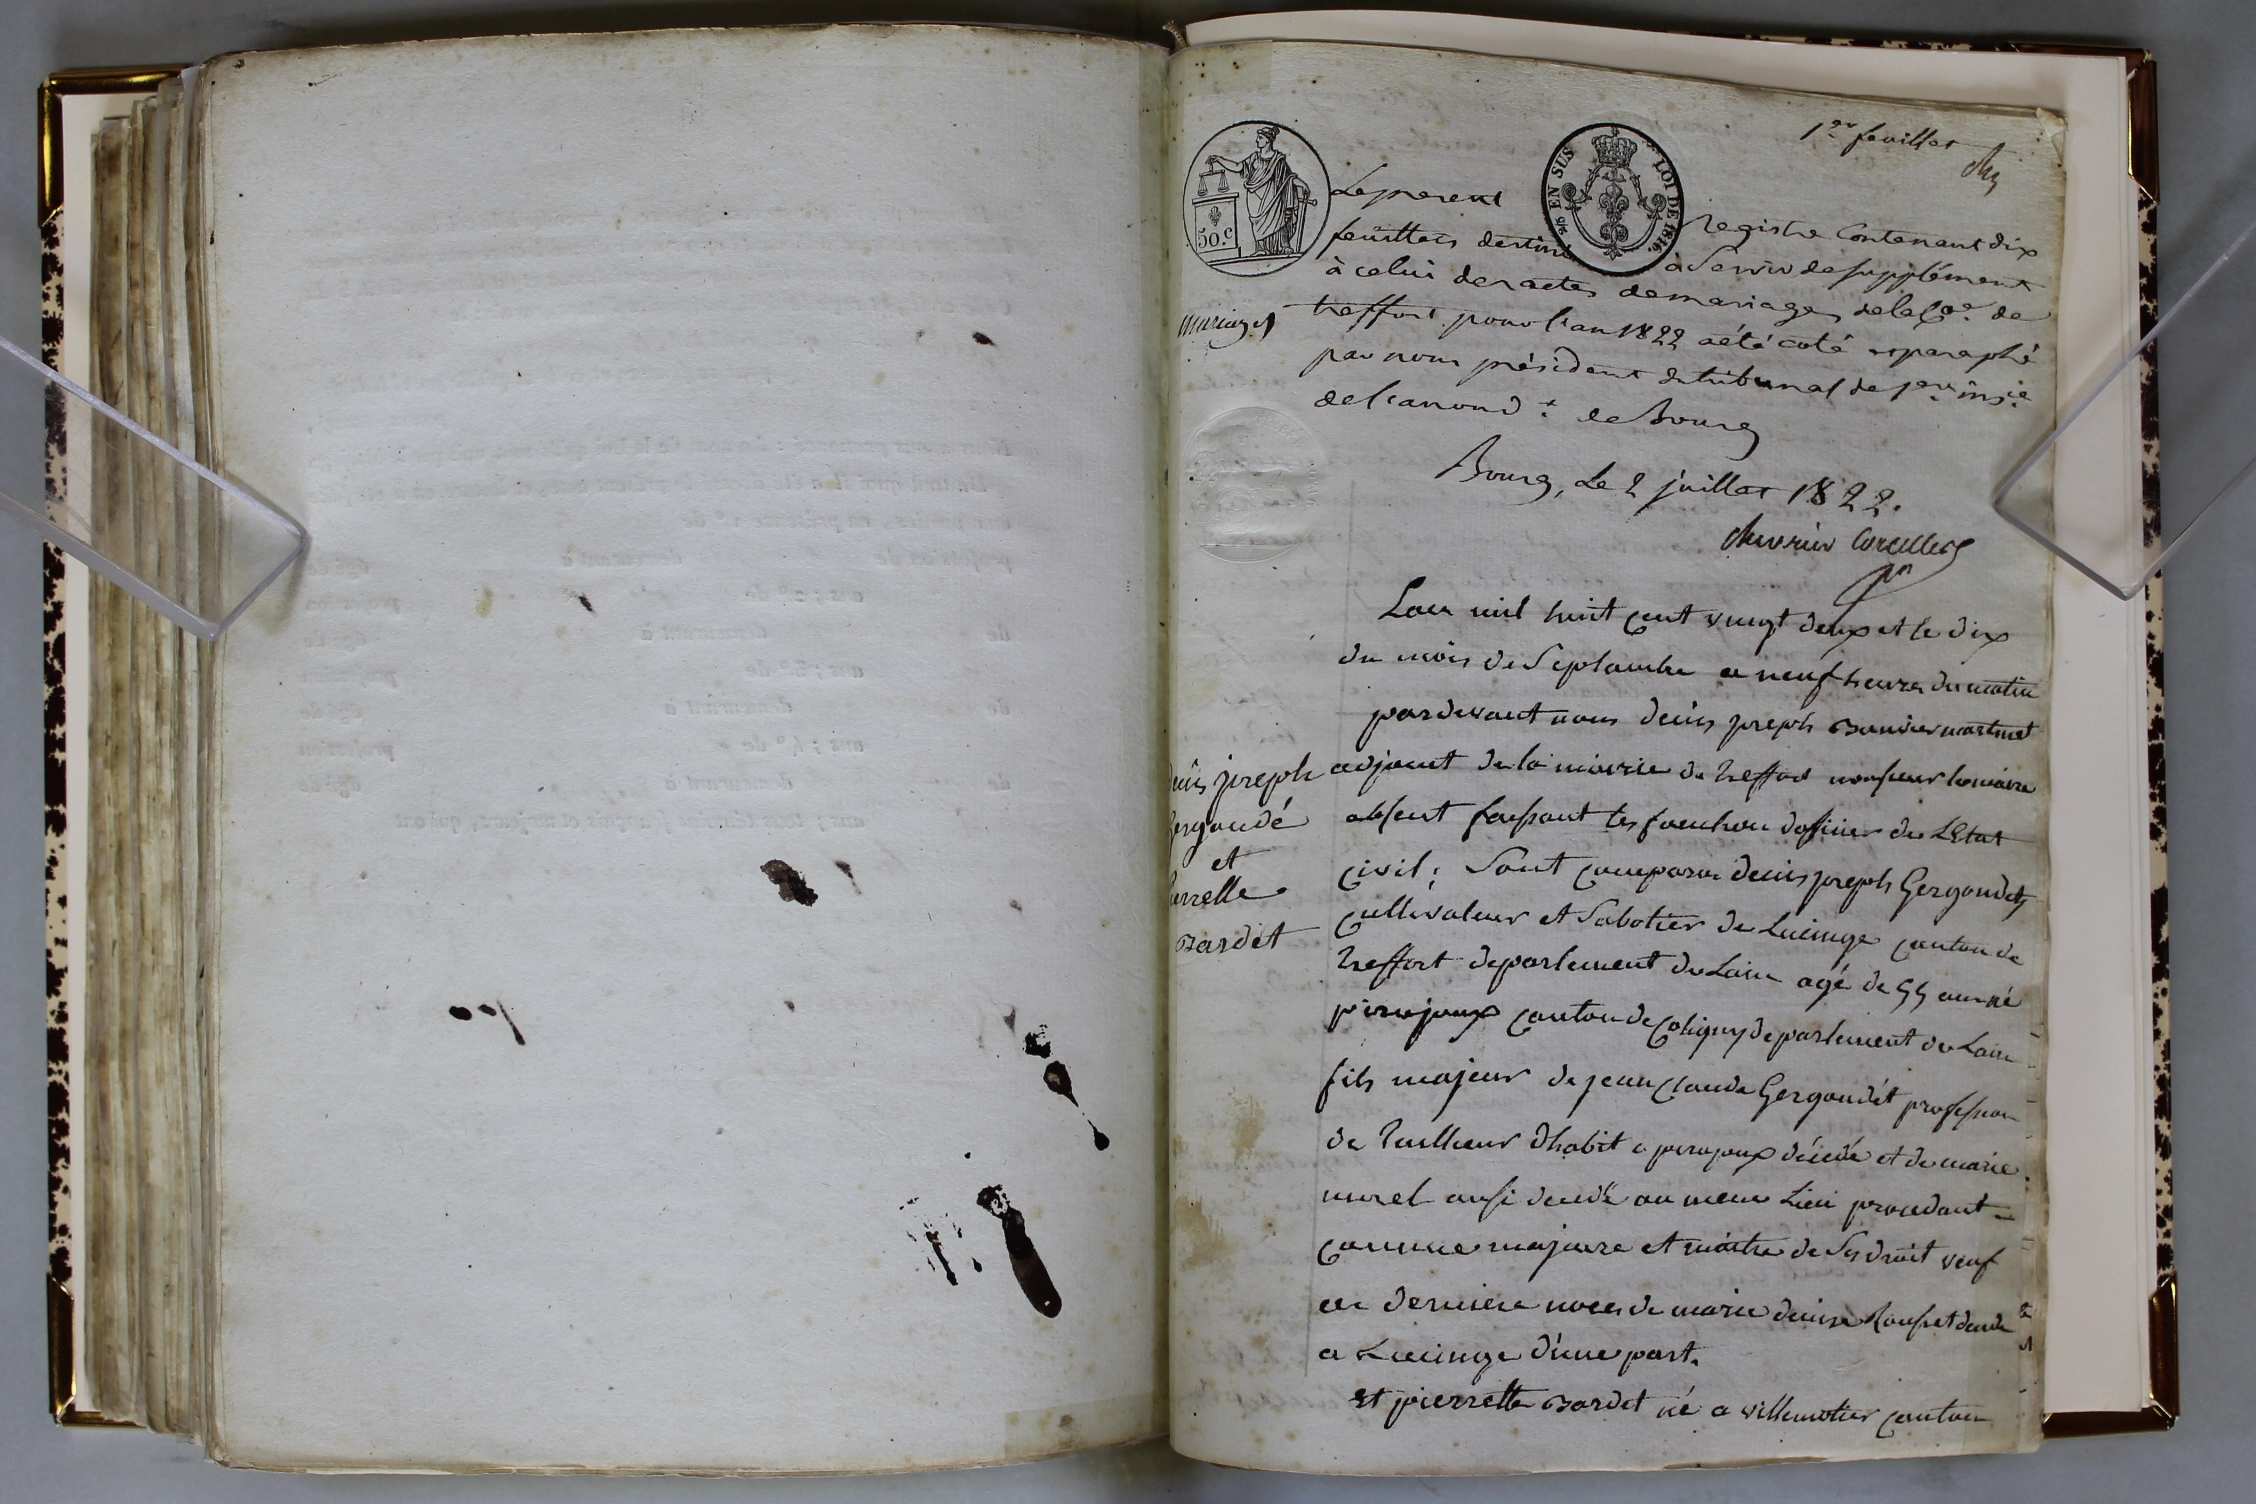 1er feuillet
50.c
EN SUS LOI DE 1816.
Le present registre contenant dix
feuillets destiné à servir de supplément
à celui des actes de mariages de la Cne. de
treffort pour l'an 1822 a été coté et paraphé
par nous président du tribunal de 1ere. insce.
de l'arrond.t de Bourg
Bourg, le 2 juillet 1822.
mariages
Lan mil huit cent vingt deux et le dix
du mois de Septambre a neuf heures du matin
pardevant nous denis joseph martinet
adjouet de la mairie de treffort monsieur le maire
absent faisant les fonction dofficier de LEtat
civil; Sont comparu denis joseph Gergondet
cultivateur et Sabotier de Lucinge canton de
treffort departement de Lain agé de 55 ans né
pirajoux canton de Coligny departement de Lain
fils majeur de jean claude Gergondét profession
de tailleur dhabit a pirajoux décédé et de marie
murel ausi décédé au meme Lieu procedant
comme majeure et maitre de Ses droit veuf
en derniere noces de marie denise
a Lucinge d'une part.
et pierrette Bardet né a villemotier canton
denis joseph
Gergondé
et
pierrette
Bardet